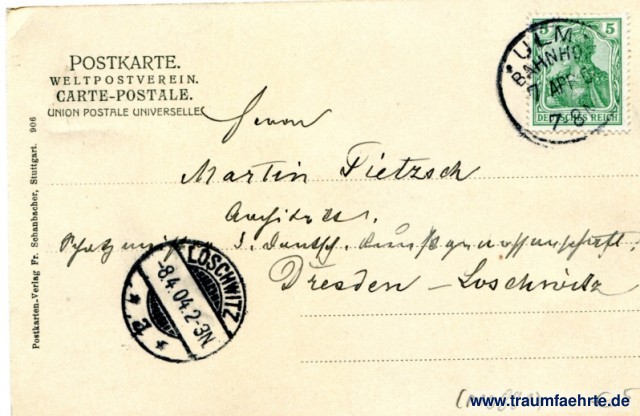 POSTKARTE.
WELTPOSTVEREIN.
CARTE-POSTALE.
UNION POSTALE UNIVERSELLE
5 5
DEUTSCHES REICH
* ULM
BAHNHOF
7 APR
7-8
Herrn
Martin Pietzsch
Architekt,
d. deutsch. Kunstgenossenschaft,
Dresden – Loschwitz
LOSCHWITZ
8.4.04.2-3N.
* a. *
Postkarten-Verlag Fr. Schanbacher, Stuttgart. 906
www.traumfaehrte.de